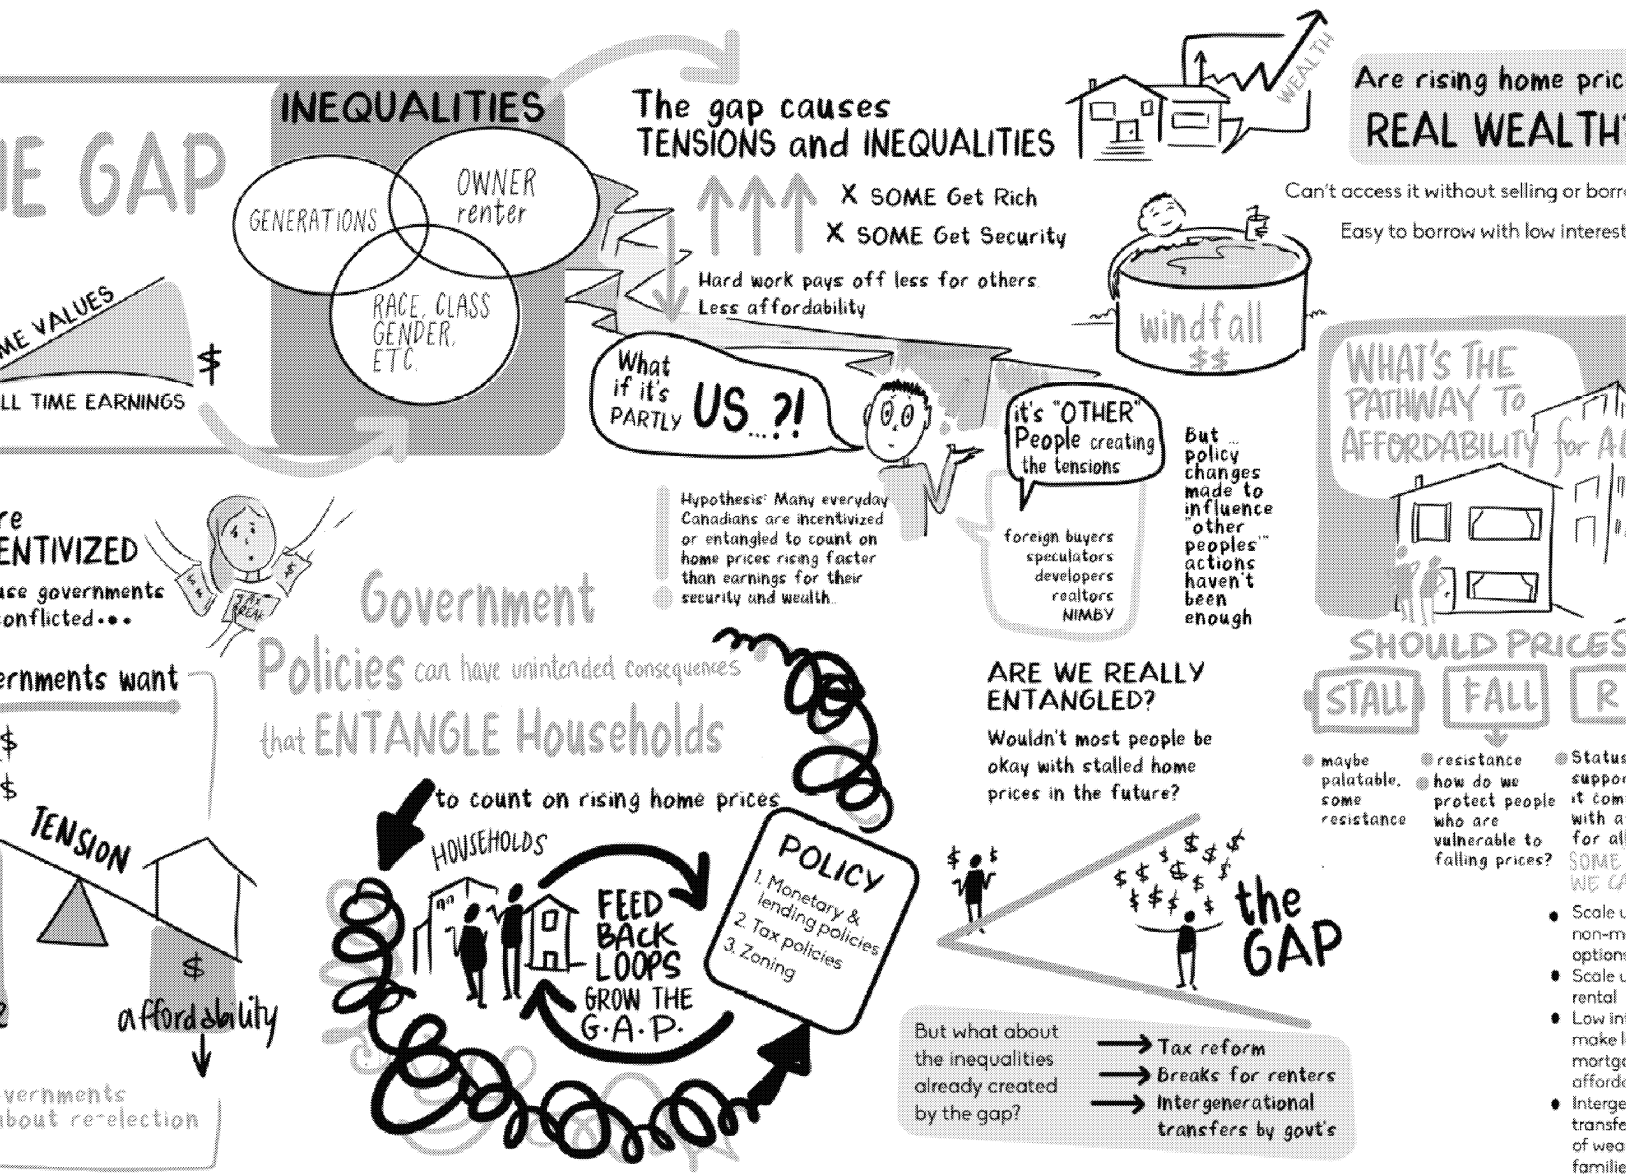 THE GAP
INEQUALITIES
GENERATIONS
OWNER
renter
RACE, CLASS
GENDER,
ETC.
ME VALUES
$
LL TIME EARNINGS
The gap causes
TENSIONS and INEQUALITIES
X SOME Get Rich
X SOME Get Security
Hard work pays off less for others.
Less affordability
WEALTH
Are rising home pric
REAL WEALTH?
Can't access it without selling or borro
Easy to borrow with low interest
windfall
$$
What
if it's
PARTLY
US...?!
it's "OTHER"
People creating
the tensions
foreign buyers
speculators
developers
realtors
NIMBY
But ...
policy
changes
made to
influence
"other
peoples'"
actions
haven't
been
enough
Hypothesis: Many everyday
Canadians are incentivized
or entangled to count on
home prices rising faster
than earnings for their
security and wealth.
WHAT'S THE
PATHWAY To
AFFORDABILITY for A
SHOULD PRICES
STALL
FALL
R
maybe
palatable,
some
resistance
resistance
how do we
protect people
who are
vulnerable to
falling prices?
Status
suppor
it com
with a
for all
SOME
WE CA
Scale u
non-m
options
Scale u
rental
Low int
make l
mortga
afforda
Interge
transfe
of wea
familie
re
ENTIVIZED
use governments
conflicted...
$
$
TAX
BREAK
ernments want
$
$
TENSION
$
affordability
vernments
about re-election
Government
Policies can have unintended consequences
that ENTANGLE Households
to count on rising home prices
HOUSEHOLDS
FEED
BACK
LOOPS
GROW THE
G.A.P.
POLICY
1. Monetary &
lending policies
2. Tax policies
3. Zoning
ARE WE REALLY
ENTANGLED?
Wouldn't most people be
okay with stalled home
prices in the future?
$ $
$ $ $ $ $ $ $ $ $ $ $ $
the
GAP
But what about
the inequalities
already created
by the gap?
Tax reform
Breaks for renters
Intergenerational
transfers by govt's